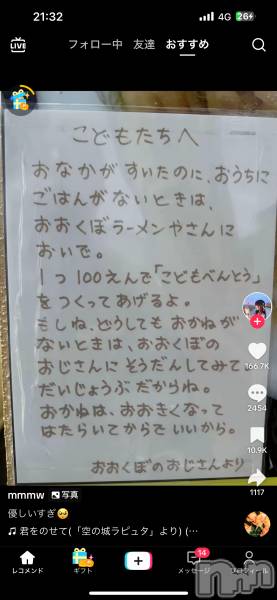 21:32
4G 26+
LIVE
フォロー中 友達 おすすめ
こどもたちへ
おなかがすいたのに、おうちに
ごはんがないときは、
おおくぼラーメンやさんに
おいで。
1つ100えんで「こどもべんとう」
をつくってあげるよ。
もしね、どうしても おかねが
ないときは、おおくぼの
おじさんに そうだんしてみて
だいじょうぶ だからね。
おかねは、おおきくなって
はたらいてからで いいから。
おおくぼのおじさんより
166.7K
2454
10.9K
1117
mmmw 写真
優しいすぎ
君をのせて(「空の城ラピュタ」より) (…
14
レコメンド ギフト メッセージ プロフィール